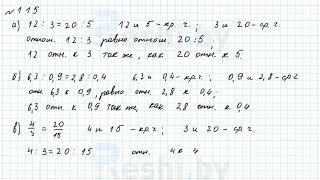 № 115
а) 12 : 3 = 20 : 5 12 и 5 - кр. ч ; 3 и 20 - ср. ч
отнош. 12 : 3 равно отнош. 20 : 5 ,
12 отн. к 3 так же, как 20 отн. к 5.
б) 6,3 : 0,9 = 2,8 : 0,4 6,3 и 0,4 - кр. ч ; 0,9 и 2,8 - ср. ч
отн 6,3 к 0,9, равно отн. 2,8 к 0,4,
6,3 отн. к 0,9 так же, как 2,8 отн. к 0,4
в) 4/3 = 20/15 4 и 15 - кр. ч ; 3 и 20 - ср. ч.
4 : 3 = 20 : 15 отн. 4 к
Reshi.by